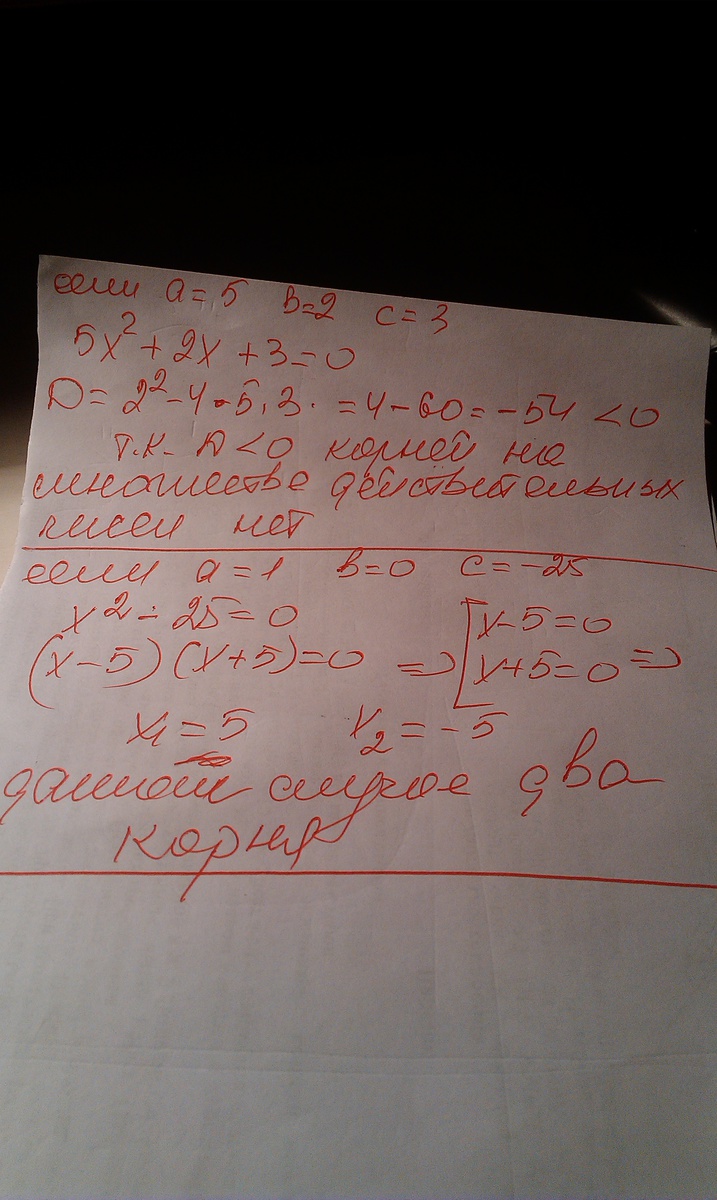 если a = 5 b=2 c = 3
5x² + 2x + 3 = 0
D = 2² - 4 · 5 · 3 · = 4 - 60 = -54 < 0
т.к. D < 0 корней на
множестве действительных
чисел нет
если a = 1 b = 0 c = -25
x² - 25 = 0
(x - 5) (x + 5) = 0 => [ x - 5 = 0
x + 5 = 0 =>
x₁ = 5 x₂ = -5
данном случае два
корня